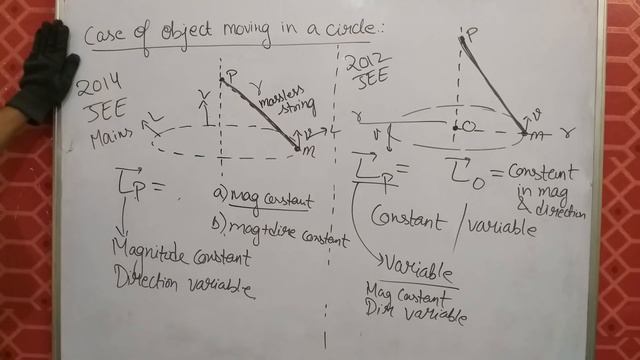 Case of object moving in a circle:
2014
JEE
Mains
L
v
P
r
massless
string
v
L
m
L_P =
a) mag constant
b) mag+dire constant
Magnitude constant
Direction variable
2012
JEE
P
r
O
v
v
m
r
L_P =
L_O = Constant
in mag
& direction
Constant / variable
Variable
Mag constant
Dir variable